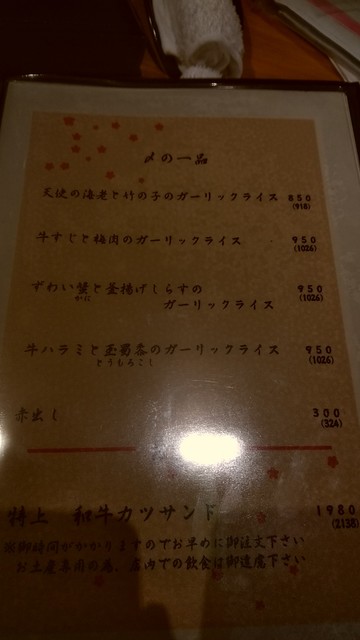 〆の一品
天使の海老と竹の子のガーリックライス 850
(918)
牛すじと梅肉のガーリックライス 950
(1026)
ずわい蟹と釜揚げしらすの 950
かに (1026)
ガーリックライス
牛ハラミと玉蜀黍のガーリックライス 950
とうもろこし (1026)
赤出し 300
(324)
特上 和牛カツサンド 1980
(2138)
※御時間がかかりますのでお早めに御注文下さい
お土産専用の為、店内での飲食は御遠慮下さい